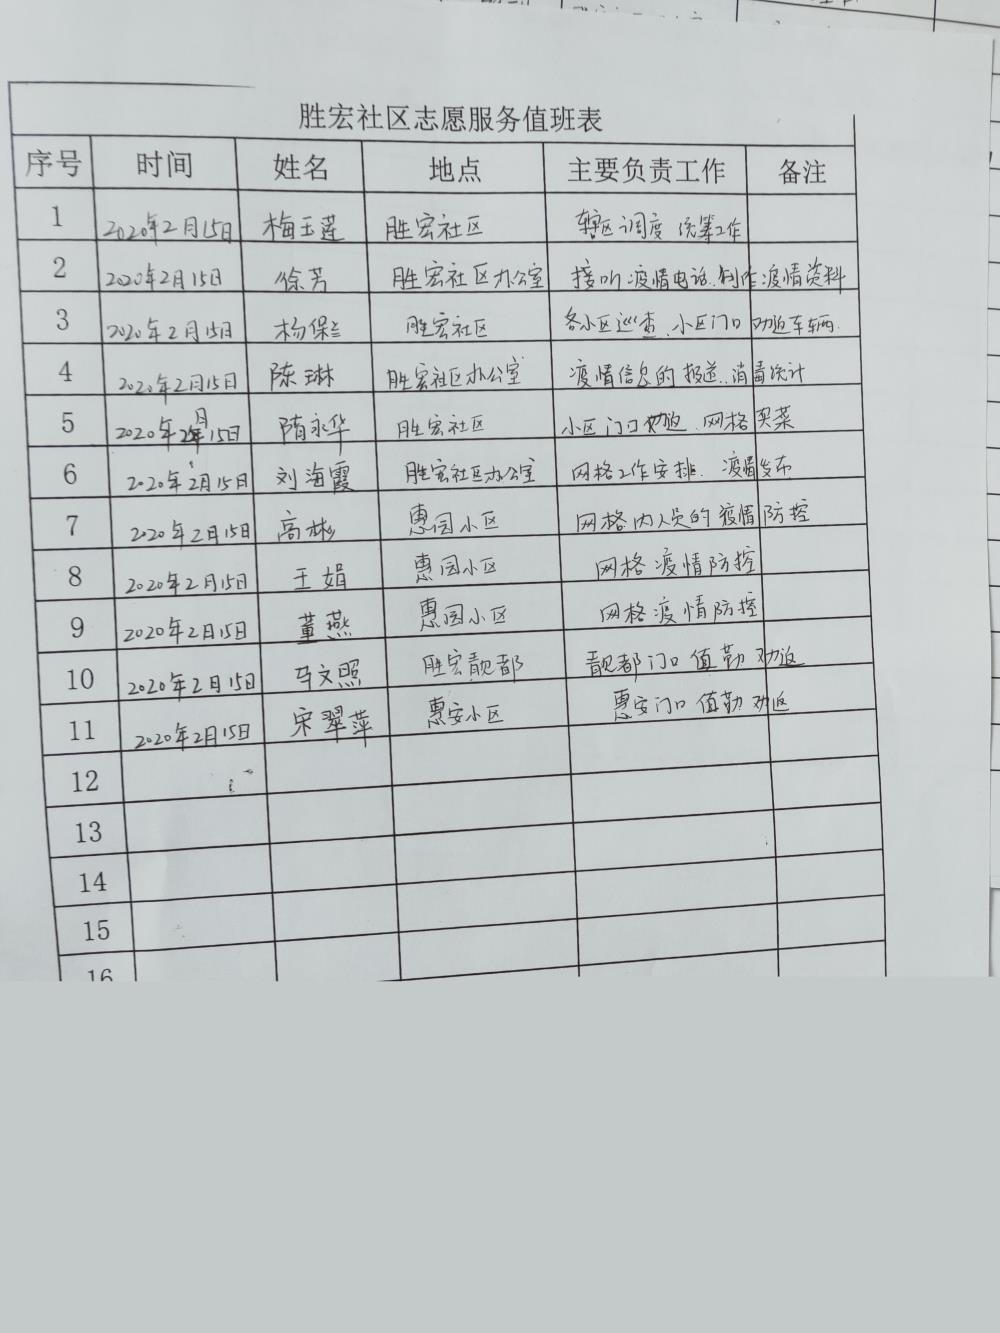 胜宏社区志愿服务值班表
序号 时间 姓名 地点 主要负责工作 备注
1 2020年2月15日 梅玉莲 胜宏社区 辖区调度 统筹工作
2 2020年2月15日 徐芳 胜宏社区办公室 接听疫情电话.制作疫情资料
3 2020年2月15日 杨保兰 胜宏社区 各小区巡查.小区门口劝返车辆.
4 2020年2月15日 陈琳 胜宏社区办公室 疫情信息的报送.消毒统计
5 2020年2月15日 隋永华 胜宏社区 小区门口劝返.网格买菜
6 2020年2月15日 刘海霞 胜宏社区办公室 网格工作安排.疫情发布
7 2020年2月15日 高彬 惠园小区 网格内人员的疫情防控
8 2020年2月15日 王娟 惠园小区 网格疫情防控
9 2020年2月15日 董燕 惠园小区 网格疫情防控
10 2020年2月15日 马文照 胜宏靓都 靓都门口值勤劝返
11 2020年2月15日 宋翠萍 惠安小区 惠安门口值勤劝返
12
13
14
15
16